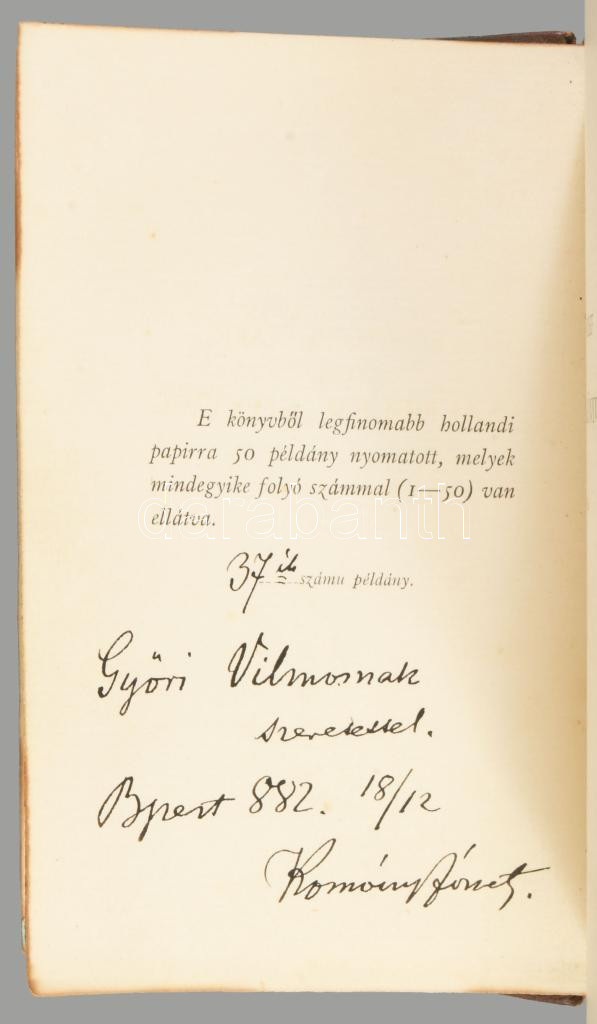 E könyvből legfinomabb hollandi
papirra 50 példány nyomatott, melyek
mindegyike folyó számmal (1—50) van
ellátva.
darabanth
37 ik számu példány.
Győri Vilmosnak
szeretettel.
Bpest 882. 18/12
Komócsy József.